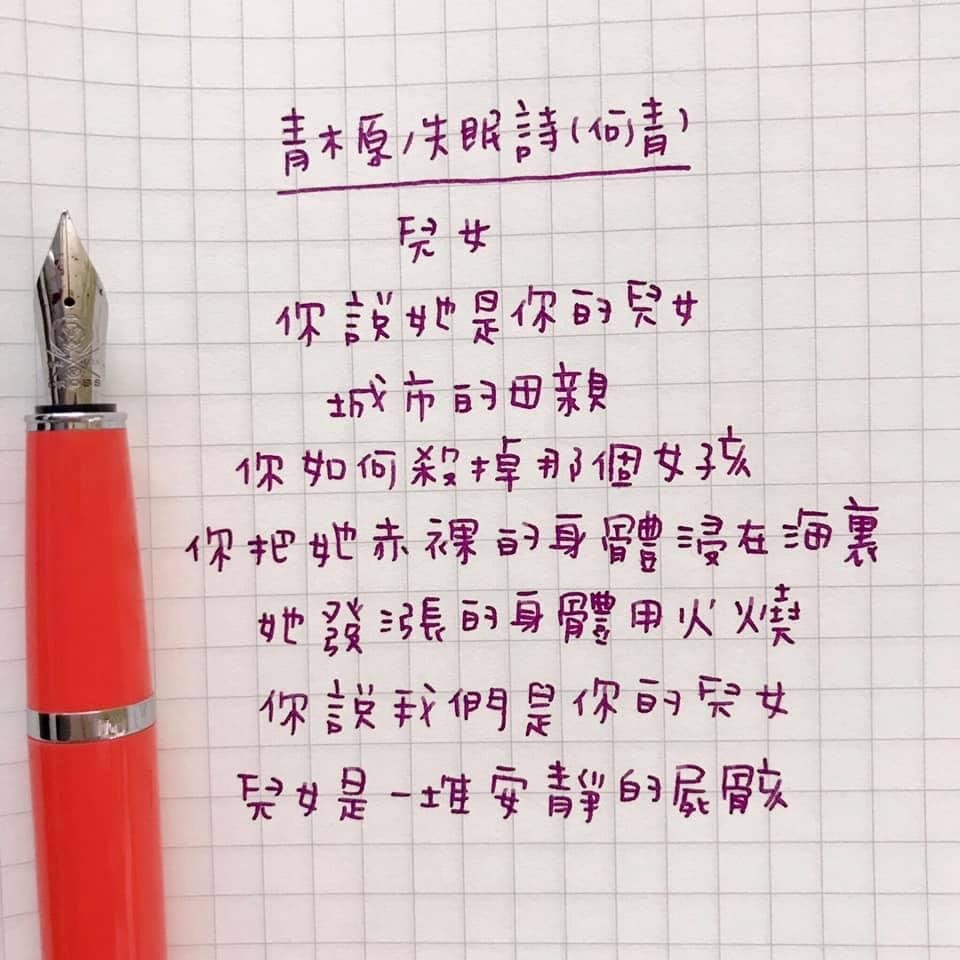 青木原/失眠詩(何青)
兒女
你說她是你的兒女
城市的母親
你如何殺掉那個女孩
你把她赤裸的身體浸在海裏
她發漲的身體用火燒
你說我們是你的兒女
兒女是一堆安靜的屍骸